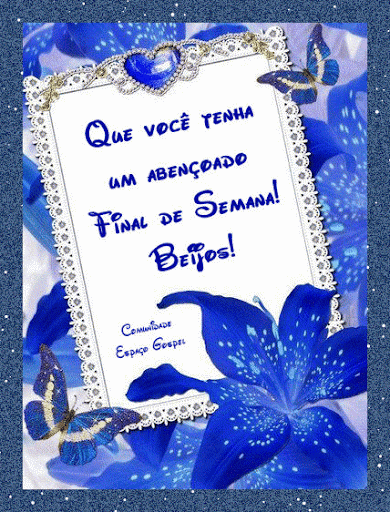 Que você tenha
um abençoado
Final de Semana!
Beijos!
Comunidade
Espaço Gospel